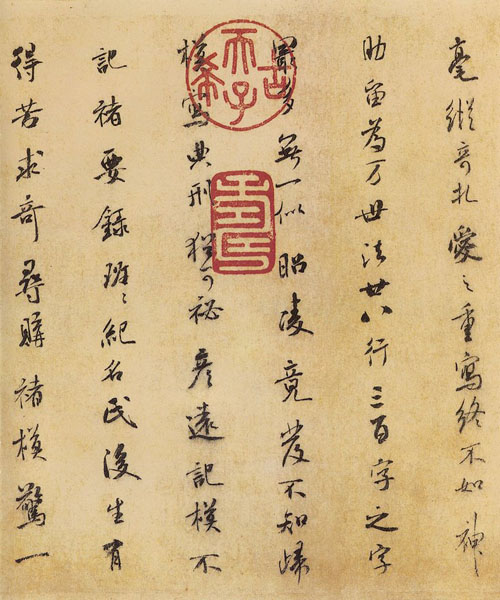 毫縱奇札愛之重寫終不如神
助留為万世法廿八行三百字之字
最多無一似昭陵竟發不知歸
模寫典刑猶可祕彦遠記模不
記褚要錄班〻紀名氏後生有
得苦求奇尋購褚模驚一
古希天子